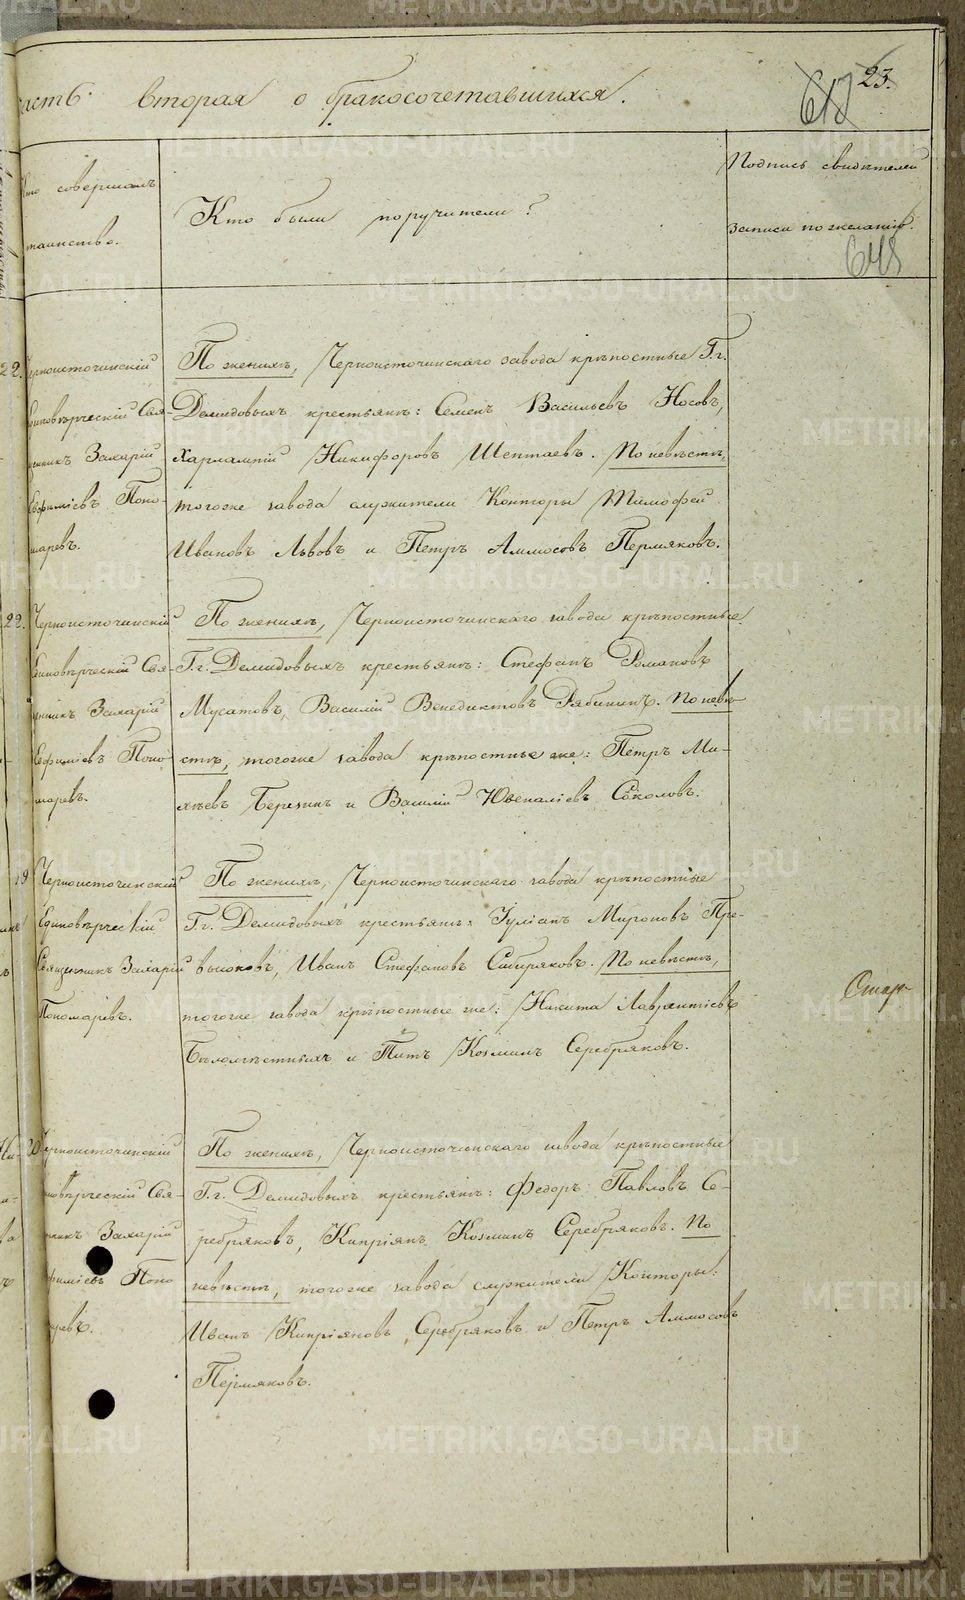 часть вторая о бракосочетавшихся.
23.
617
Кто совершалъ
таинство.
Кто были поручители?
Подпись свидѣтелей
записи по желанію.
648
22. Черноисточинскій
Единовѣрческій Свя-
щенникъ Захарій
Ефиміевъ Поно-
маревъ.
По женихѣ, Черноисточинскаго завода крѣпостные Г.г.
Демидовыхъ крестьяне: Семенъ Васильевъ Носовъ,
Харлампій Никифоровъ Шептаевъ. По невѣстѣ,
тогоже завода служители Конторы Тимофей
Ивановъ Львовъ и Петръ Аммосовъ Пермяковъ.
22. Черноисточинскій
Единовѣрческій Свя-
щенникъ Захарій
Ефиміевъ Поно-
маревъ.
По женихѣ, Черноисточинскаго завода крѣпостные
Г.г. Демидовыхъ крестьяне: Стефанъ Романовъ
Мусатовъ, Василій Венедиктовъ Рябининъ. По невѣ-
стѣ, тогоже завода крѣпостные же: Петръ Ми-
хѣевъ Березинъ и Василій Ювеналіевъ Соколовъ.
19 Черноисточинскій
Единовѣрческій
Священникъ Захарій
Пономаревъ.
По женихѣ, Черноисточинскаго завода крѣпостные
Г.г. Демидовыхъ крестьяне: Іуліанъ Мироновъ Пре-
высоковъ, Иванъ Стефановъ Сибиряковъ. По невѣстѣ,
тогоже завода крѣпостные же: Никита Лаврентіевъ
и Титъ Козминъ Серебряковъ.
Стар
20 Черноисточинскій
Единовѣрческій Свя-
щенникъ Захарій
Ефиміевъ Поно
маревъ.
По женихѣ, Черноисточинскаго завода крѣпостные
Г.г. Демидовыхъ крестьяне: Федоръ Павловъ Се-
ребряковъ, Кипріянъ Козминъ Серебряковъ. По
невѣстѣ, тогоже завода служители Конторы:
Иванъ Кипріяновъ Серебряковъ и Петръ Аммосовъ
Пермяковъ.
METRIKI.GASO-URAL.RU